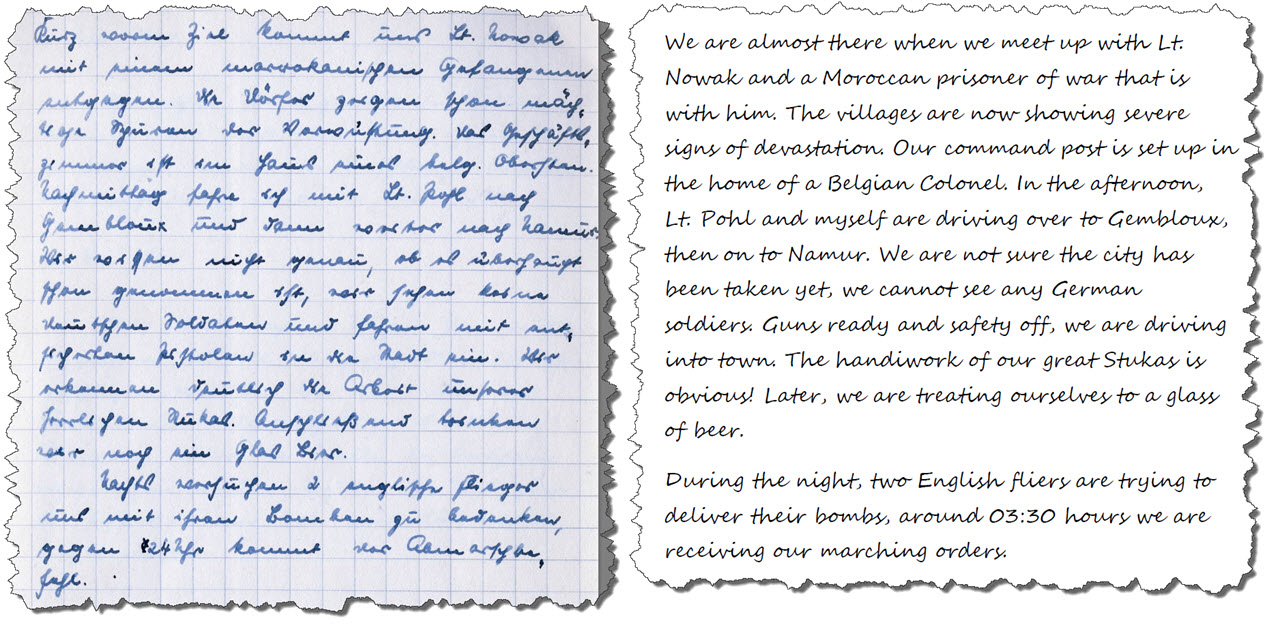 Kurz vorm Ziel kommt uns Lt. Nowak
mit einem marrokanischen Gefangenen
entgegen. Die Dörfer zeigen schon mäch,
tige Spuren der Verwüstung. Das Geschäfts,
zimmer ist im Haus eines belg. Obersten.
Nachmittag fahre ich mit Lt. Pohl nach
Gembloux und dann weiter nach Namur.
Wir wissen nicht genau, ob es überhaupt
schon genommen ist, wir sehen keine
deutschen Soldaten und fahren mit ent,
sicherten Pistolen in die Stadt ein. Wir
erkennen deutlich die Arbeit unserer
herrlichen Stukas. Anschließend trinken
wir noch ein Glas Bier.
Nachts versuchen 2 englische Flieger
uns mit ihren Bomben zu bedenken,
gegen 24 Uhr kommt der Abmarschbe,
fehl.
We are almost there when we meet up with Lt.
Nowak and a Moroccan prisoner of war that is
with him. The villages are now showing severe
signs of devastation. Our command post is set up in
the home of a Belgian Colonel. In the afternoon,
Lt. Pohl and myself are driving over to Gembloux,
then on to Namur. We are not sure the city has
been taken yet, we cannot see any German
soldiers. Guns ready and safety off, we are driving
into town. The handiwork of our great Stukas is
obvious! Later, we are treating ourselves to a glass
of beer.
During the night, two English fliers are trying to
deliver their bombs, around 03:30 hours we are
receiving our marching orders.